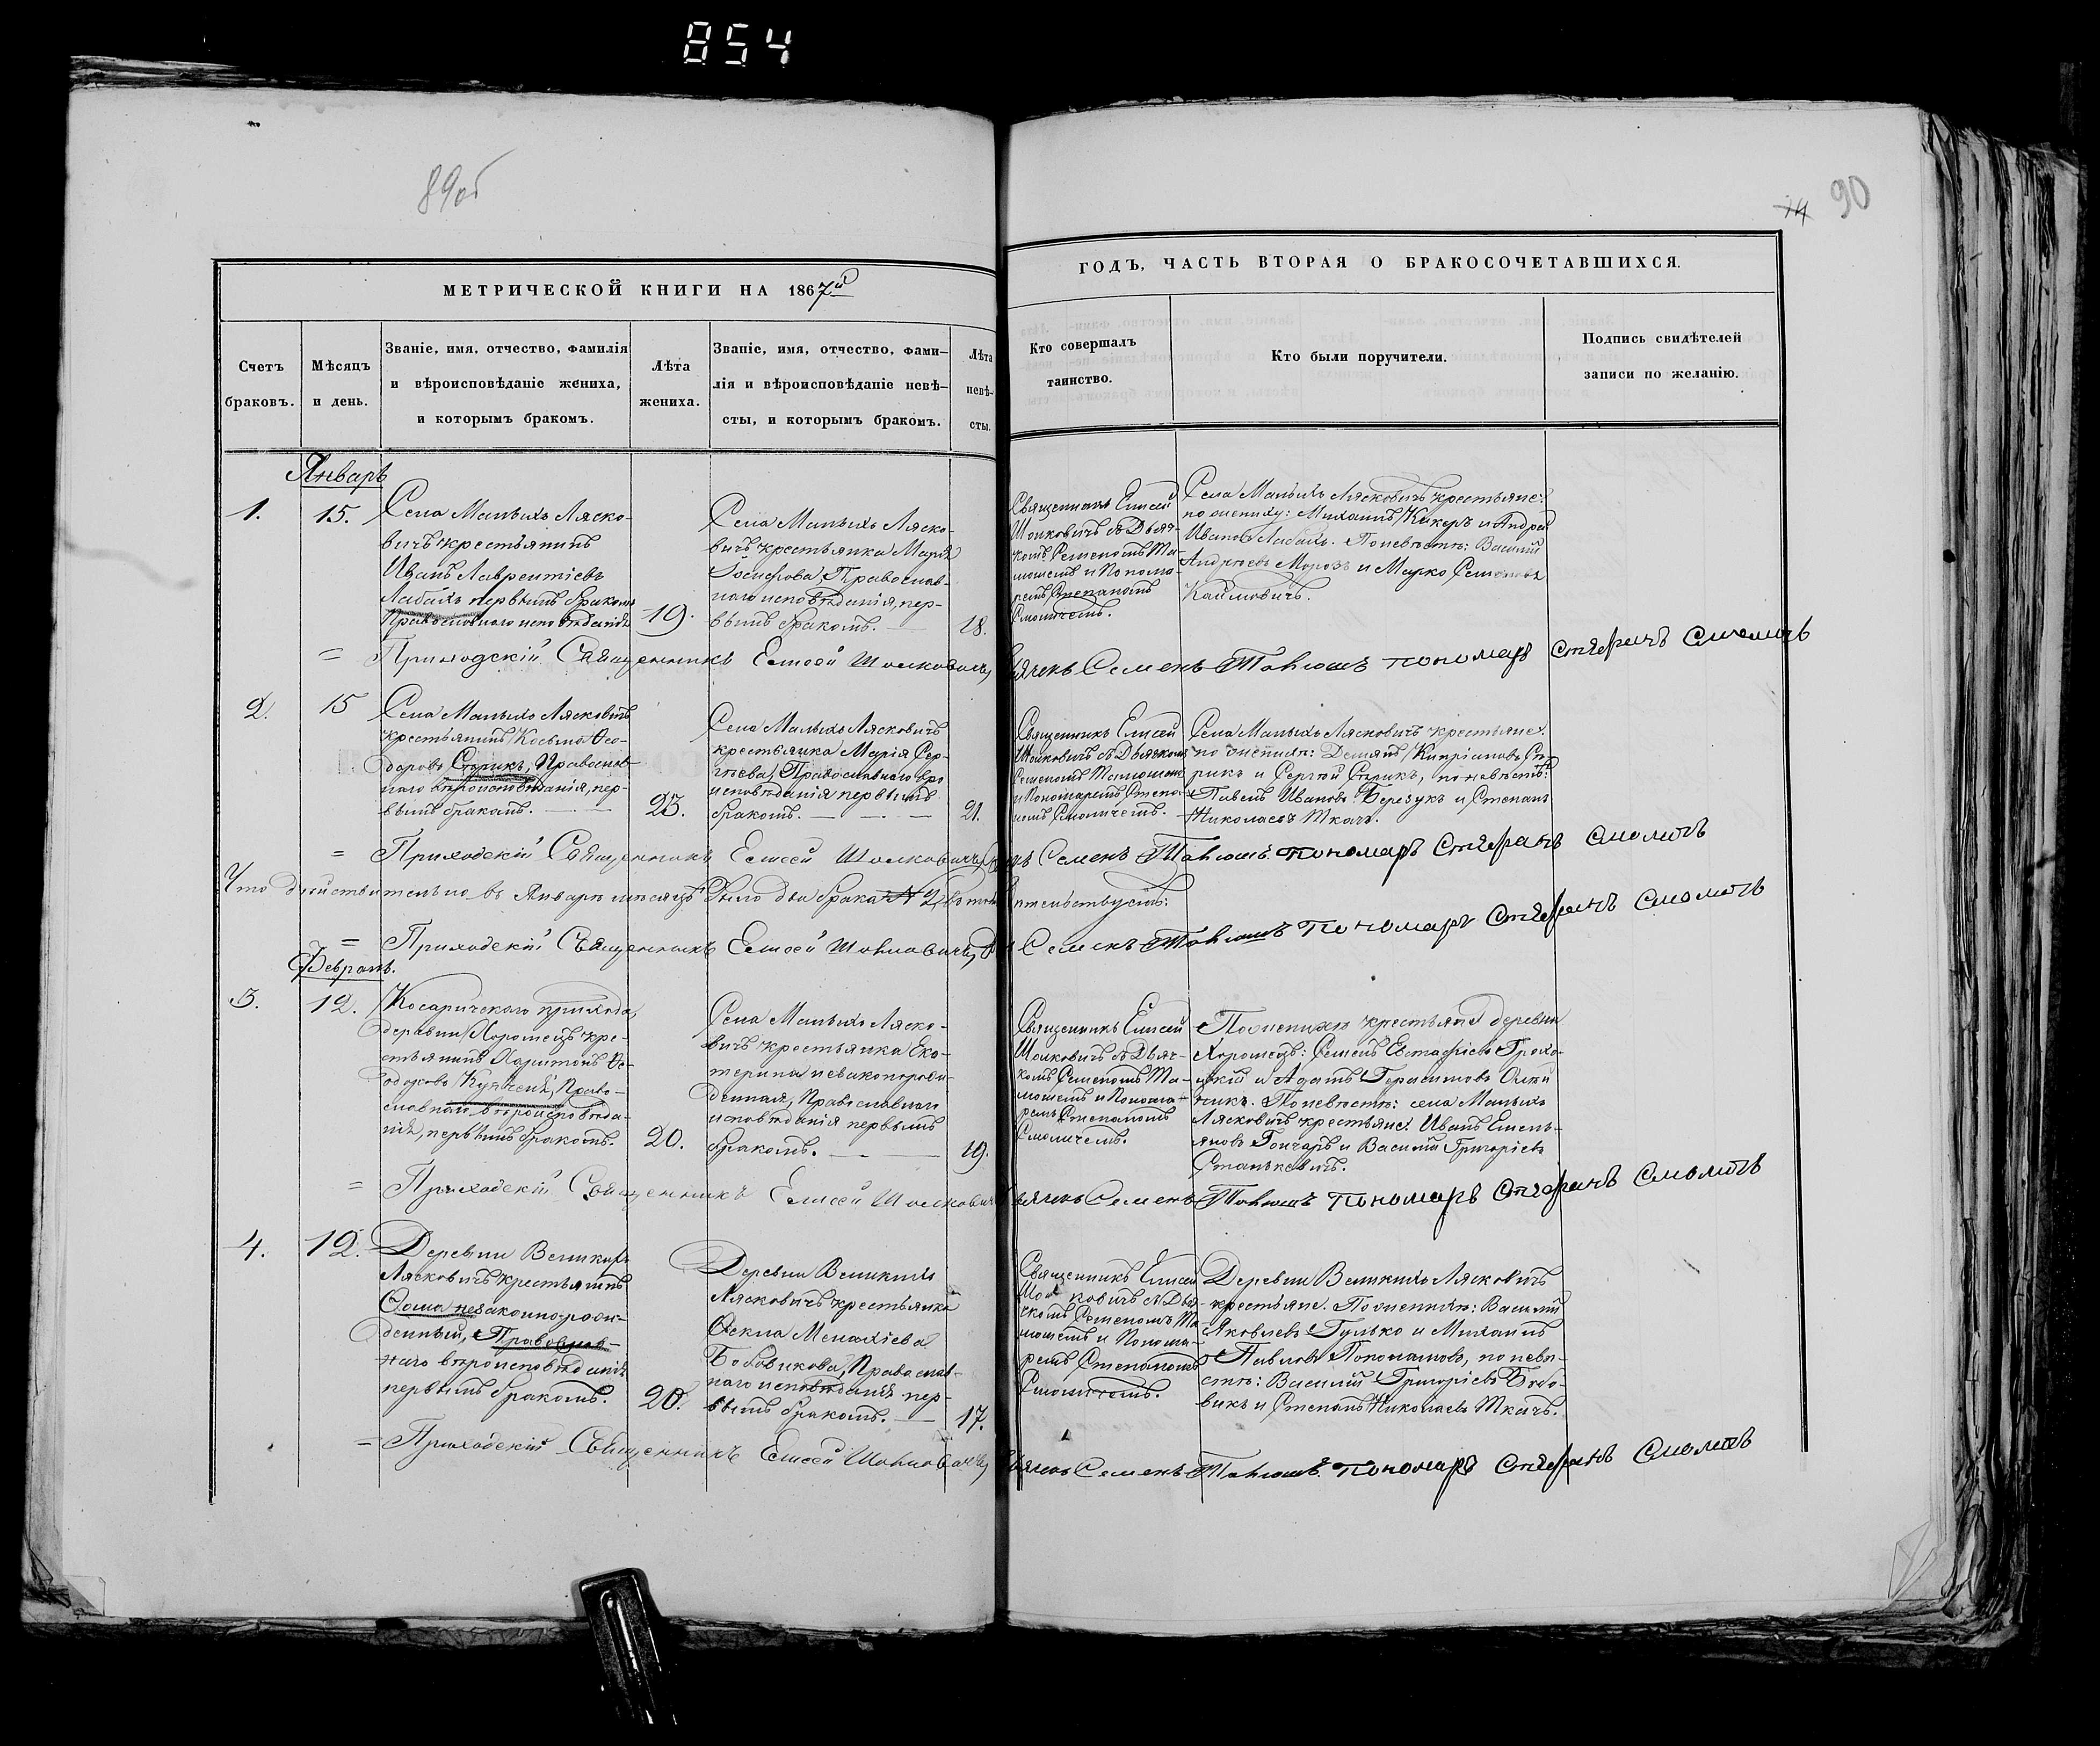 854
89об
74 90
МЕТРИЧЕСКОЙ КНИГИ НА 1867й
ГОДЪ, ЧАСТЬ ВТОРАЯ О БРАКОСОЧЕТАВШИХСЯ.
Счетъ
браковъ.
Мѣсяцъ
и день.
Званіе, имя, отчество, фамилія
и вѣроисповѣданіе жениха,
и которымъ бракомъ.
Лѣта
жениха.
Званіе, имя, отчество, фами-
лія и вѣроисповѣданіе невѣ-
сты, и которымъ бракомъ.
Лѣта
невѣ-
сты.
Кто совершалъ
таинство.
Кто были поручители.
Подпись свидѣтелей
записи по желанію.
Январь
1.
15.
Села Малыхъ Ляско-
вичъ крестьянинъ
Иванъ Лаврентіевъ
Лабахъ первымъ бракомъ
Православнаго исповѣданія
19.
Села Малыхъ Ляско-
вичъ крестьянка Марія
Іосифова, Православ-
наго исповѣданія, пер-
вымъ бракомъ.
18.
Священникъ Елисей
Шолковичъ съ Дьяч-
комъ Семеномъ Та-
мошемъ и Понома-
ремъ Степаномъ
Смоличемъ.
Села Малыхъ Лясковичъ крестьяне:
по жениху: Михаилъ Кикеръ и Андрей
Ивановъ Лабахъ. По невѣстѣ: Василій
Андреевъ Морозъ и Марко Семеновъ
Каймовичъ.
= Приходскій Священникъ Елисей Шолковичъ,
Дьячекъ Семенъ пономарь Стефанъ Смоличъ
2.
15
Села Малыхъ Лясковичъ
крестьянинъ Косьма Ѳео-
доровъ Сѣрикъ, Православ-
наго вѣроисповѣданія, пер-
вымъ бракомъ.
23.
Села Малыхъ Лясковичъ
крестьянка Марія Сер-
гѣева, Православнаго вѣро
исповѣданія первымъ
бракомъ.
21.
Священникъ Елисей
Шолковичъ съ Дьячкомъ
Семеномъ Тамошемъ
и Пономаремъ Степа-
номъ Смоличемъ.
Села Малыхъ Лясковичъ крестьяне.
по женихѣ: Демьянъ Кипріановъ Сѣ-
рикъ и Сергей Сѣрикъ, по невѣстѣ:
Павелъ Ивановъ Березукъ и Степанъ
Николаевъ Ткачъ.
= Приходскій Священникъ Елисей Шолковичъ,
Семенъ пономарь Стефанъ Смоличъ
Что дѣйствительно въ Январѣ мѣсяцѣ было два брака № 2, въ томъ
свидѣтельствуемъ:
= Приходскій Священникъ Елисей Шолковичъ,
Семенъ Пономарь Стефанъ Смоличъ
Февраль.
3.
12.
Косаричскаго прихода,
деревни Хоромецъ кре-
стьянинъ Харитонъ Ѳе-
одоровъ Право-
славнаго вѣроисповѣда-
нія, первымъ бракомъ.
20.
Села Малыхъ Ляско-
вичъ крестьянка Ека-
терина незаконорож-
денная, Православнаго
исповѣданія первымъ
бракомъ.
19.
Священникъ Елисей
Шолковичъ съ Дьяч-
комъ Семеномъ Та-
мошемъ и Понома-
ремъ Степаномъ
Смоличемъ.
По женихѣ крестьяне деревни
Хоромецъ: Семенъ Евстафіевъ
и Адамъ Герасимовъ
По невѣстѣ: села Малыхъ
Лясковичъ крестьяне. Иванъ Емель-
яновъ Гончаръ и Василій Григоріевъ
Станкевичъ.
= Приходскій Священникъ Елисей Шолковичъ
Дьячекъ Семенъ Пономарь Стефанъ Смоличъ
4.
12.
Деревни Великихъ
Лясковичъ крестьянинъ
Ѳома незаконнорож-
денный, Православ-
наго вѣроисповѣданія
первымъ бракомъ.
20.
Деревни Великихъ
Лясковичъ крестьянка
Ѳекла
Бобовикова, Православ-
наго исповѣданія пер-
вымъ бракомъ.
17.
Священникъ Елисей
Шолковичъ съ Дья-
чкомъ Семеномъ Та-
мошемъ и Понома-
ремъ Степаномъ
Смоличемъ.
Деревни Великихъ Лясковичъ
крестьяне. По женихѣ: Василій
Яковлевъ Гулько и Михаилъ
Павловъ по невѣ-
стѣ: Василій Григоріевъ Бобо-
викъ и Степанъ Николаевъ Ткачъ.
= Приходскій Священникъ Елисей Шолковичъ,
Дьячекъ Семенъ Пономарь Стефанъ Смоличъ